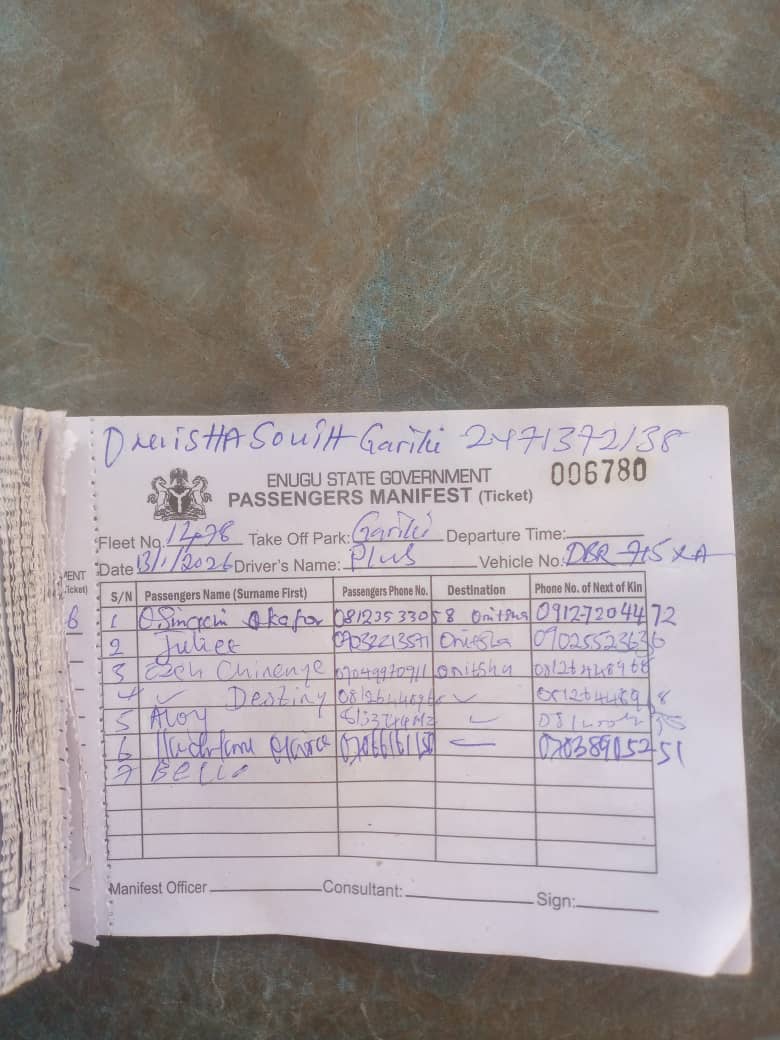 ONISHA South Gariki 2471372138
ENUGU STATE GOVERNMENT 006780
PASSENGERS MANIFEST (Ticket)
Fleet No. 1478 Take Off Park: Gariki Departure Time:
Date 13/1/2026 Driver's Name: Plus Vehicle No: DBR 715 XA
S/N Passengers Name (Surname First) Passengers Phone No. Destination Phone No. of Next of Kin
1 Okafor 08123533058 Onitsha 09127204472
2 Juliet 09032213571 Onitsha 09025523636
3 Ezeh Chinenye 07049970911 onitsha 08126448968
4 Destiny 08126448968
5 Aloy
6 07066161150 07038905251
7 Bello
Manifest Officer Consultant: Sign:
ENT
Ticket)